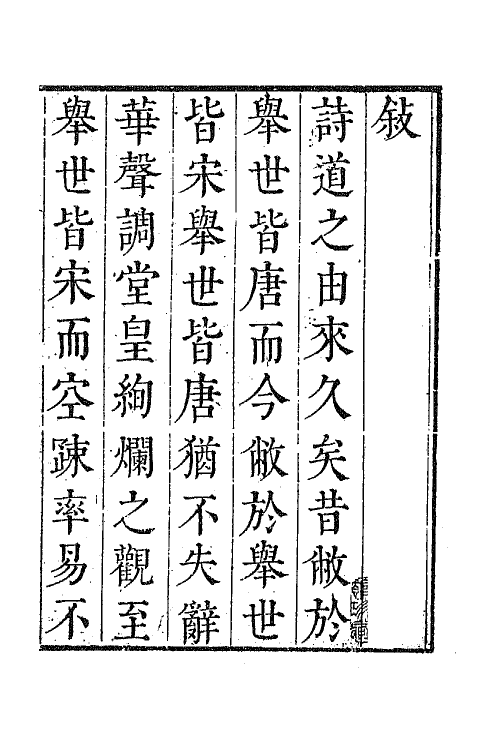 敍
詩道之由來久矣昔敝於
舉世皆唐而今敝於舉世
皆宋舉世皆唐猶不失辭
華聲調堂皇絢爛之觀至
舉世皆宋而空踈率易不